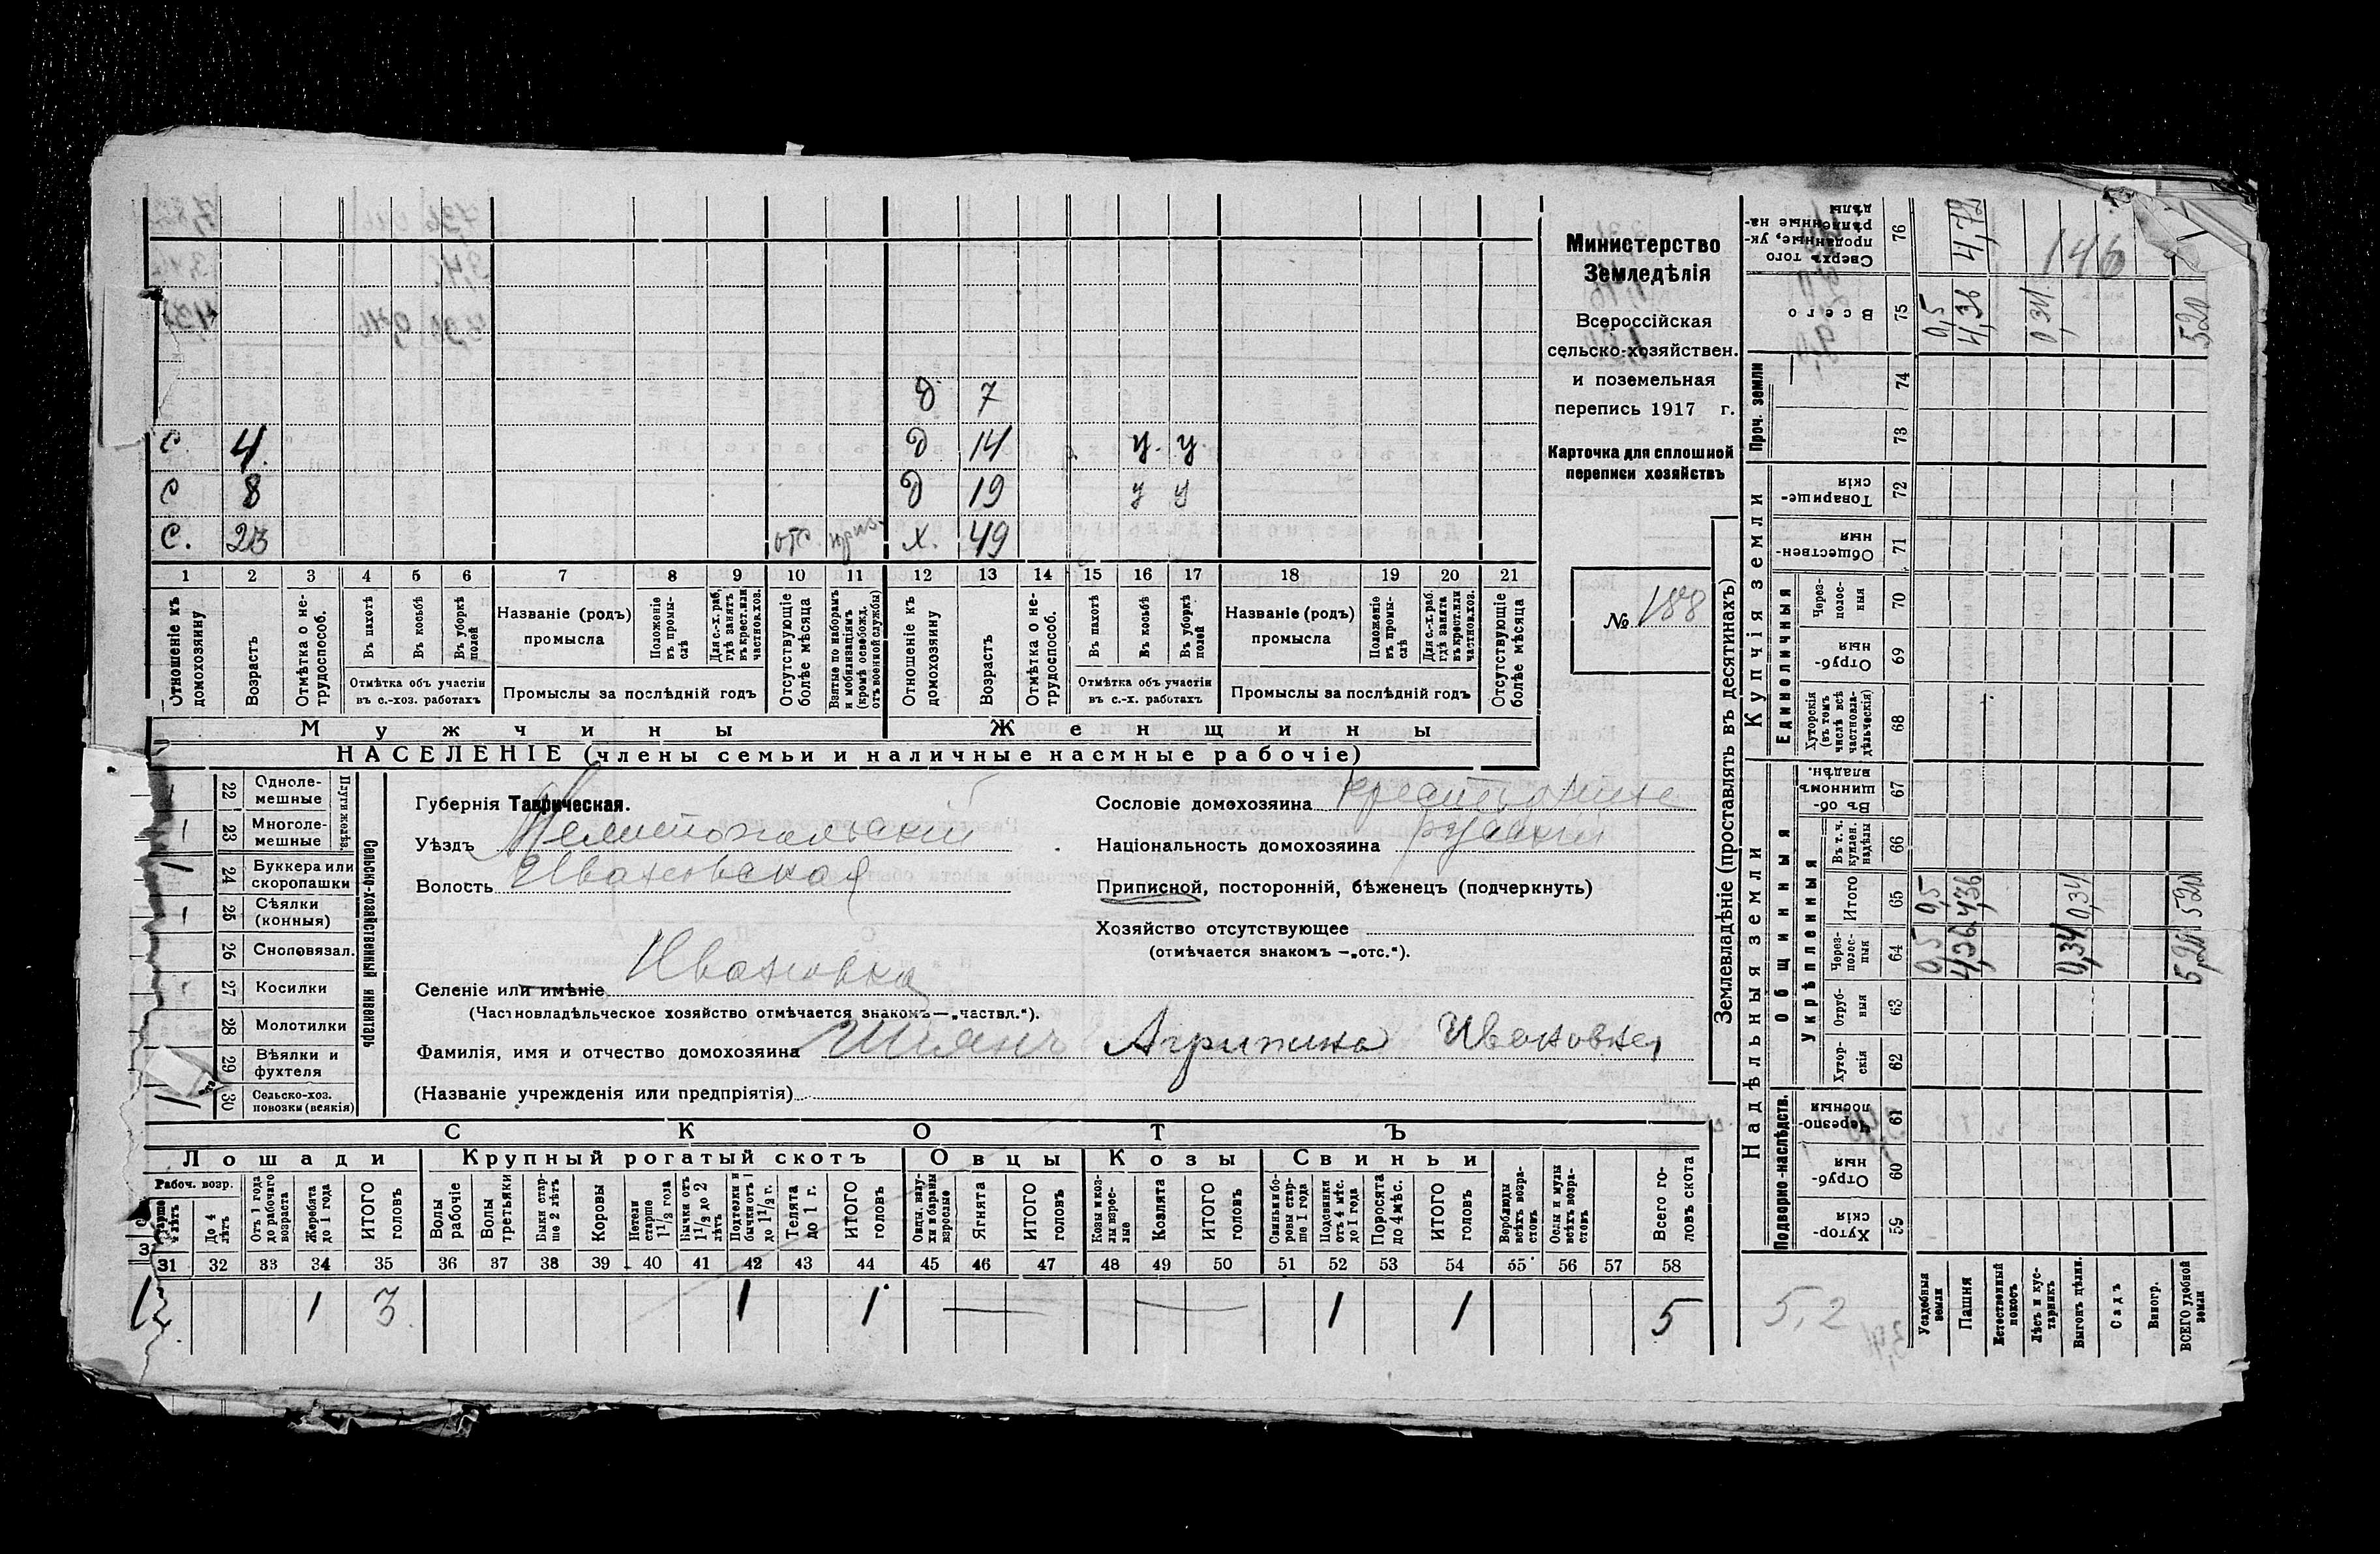 Министерство
Земледѣлія
Всероссійская
сельско-хозяйствен.
и поземельная
перепись 1917 г.
Карточка для сплошной
переписи хозяйствъ
№ 188
Д 7
С. 4. Д 14 у. у.
С 8 Д 19 у у
С. 23 отс. Х. 49
1 2 3 4 5 6 7 8 9 10 11 12 13 14 15 16 17 18 19 20 21
Отношеніе къ домохозяину
Возрастъ
Отмѣтка о не-трудоспособ.
Въ пахотѣ
Въ косьбѣ
Въ уборкѣ полей
Отмѣтка объ участіи
въ с.-хоз. работахъ
Названіе (родъ)
промысла
Положеніе въ промы-слѣ
Для с.-х. раб. гдѣ занятъ въ крест. или частнов. хоз.
Промыслы за послѣдній годъ
Отсутствующіе болѣе мѣсяца
Взятые по наборамъ и мобилизаціямъ (кромѣ освобожд. отъ военной службы)
Отношеніе къ домохозяину
Возрастъ
Отмѣтка о не-трудоспособ.
Въ пахотѣ
Въ косьбѣ
Въ уборкѣ полей
Отмѣтка объ участіи
въ с.-х. работахъ
Названіе (родъ)
промысла
Положеніе въ промы-слѣ
Для с.-х. раб. гдѣ занята въ крест. или частнов. хоз.
Промыслы за послѣдній годъ
Отсутствующіе болѣе мѣсяца
Мужчины Женщины
НАСЕЛЕНІЕ (члены семьи и наличные наемные рабочіе)
22 Одноле-мешные
1 23 Многоле-мешные
Плуги желѣз.
1 24 Буккера или скоропашки
1 25 Сѣялки (конныя)
26 Сноповязал.
27 Косилки
28 Молотилки
29 Вѣялки и фухтеля
1 30 Сельско-хоз. повозки (всякія)
Сельско-хозяйственный инвентарь
Губернія Таврическая.
Уѣздъ Мелитопольский
Волость Ивановская
Селеніе или имѣніе Ивановка
(Частновладѣльческое хозяйство отмѣчается знакомъ—„частвл.“).
Фамилія, имя и отчество домохозяина Шиянъ Агрипина Ивановна
(Названіе учрежденія или предпріятія)
Сословіе домохозяина
Національность домохозяина русский
Приписной, посторонній, бѣженецъ (подчеркнуть)
Хозяйство отсутствующее
(отмѣчается знакомъ —„отс.“).
СКОТЪ
Лошади Крупный рогатый скотъ Овцы Козы Свиньи
Рабоч. возр.
До 4 лѣтъ
Отъ 1 года до рабочаго возраста
Жеребята до 1 года
ИТОГО головъ
Волы рабочіе
Волы третьяки
Быки стар-ше 2 лѣтъ
Коровы
Нетели старше 1½ года
Бычки отъ 1½ до 2 лѣтъ
Подтелки и бычки отъ 1 до 1½ г.
Телята до 1 г.
ИТОГО головъ
Овцы, валу-хи и бараны взрослые
Ягнята
ИТОГО головъ
Козы и коз-лы взрос-лые
Козлята
ИТОГО головъ
Свиньи и бо-ровы стар-ше 1 года
Подсвинки отъ 4 мѣс. до 1 года
Поросята до 4 мѣс.
ИТОГО головъ
Верблюды всѣхъ возра-стовъ
Ослы и мулы всѣхъ возра-стовъ
Всего го-ловъ скота
31 32 33 34 35 36 37 38 39 40 41 42 43 44 45 46 47 48 49 50 51 52 53 54 55 56 57 58
1 3 1 1 — — 1 1 5
Землевладѣніе (проставлять въ десятинахъ)
Купчія земли
Надѣльныя земли
Проч. земли
Единоличныя
Общинныя
Укрѣпленныя
Подворно-наслѣдств.
Сверхъ того проданные, ук-рѣпленные на-дѣлы 76 4,72 146
Всего 75 0,5 4,36 0,34 5,20
74
73
Товарище-скія 72
Обществен-ныя 71
Через-полос-ныя 70
Отруб-ныя 69
Хуторскія (въ томъ числѣ всѣ частновла-дѣльческія) 68
Въ об-щинномъ владѣн. 67
Въ т. ч. куплен. надѣлы 66
Итого 65 0,5 4,36 0,34 5,20
Через-полос-ныя 64 0,5 4,36 0,34 5,20
Отруб-ныя 63
Хутор-скія 62
Черезпо-лосныя 61
Отруб-ныя 60
Хутор-скія 59
5,2
Усадебныя земли
Пашня
Естественный покосъ
Лѣсъ и кус-тарникъ
Выгонъ цѣлин.
Садъ
Виногр.
ВСЕГО удобной земли